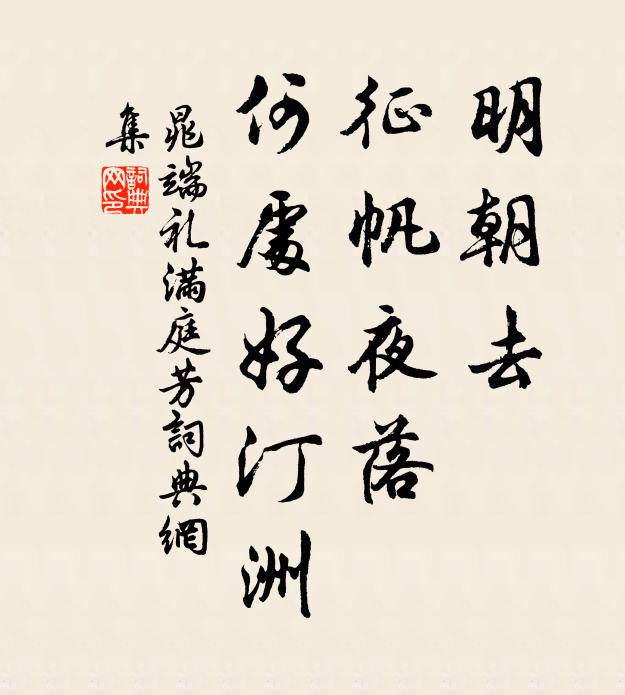 明朝去
征帆夜落
何處好汀洲
晁端礼满庭芳詞典網
集
詞典网印